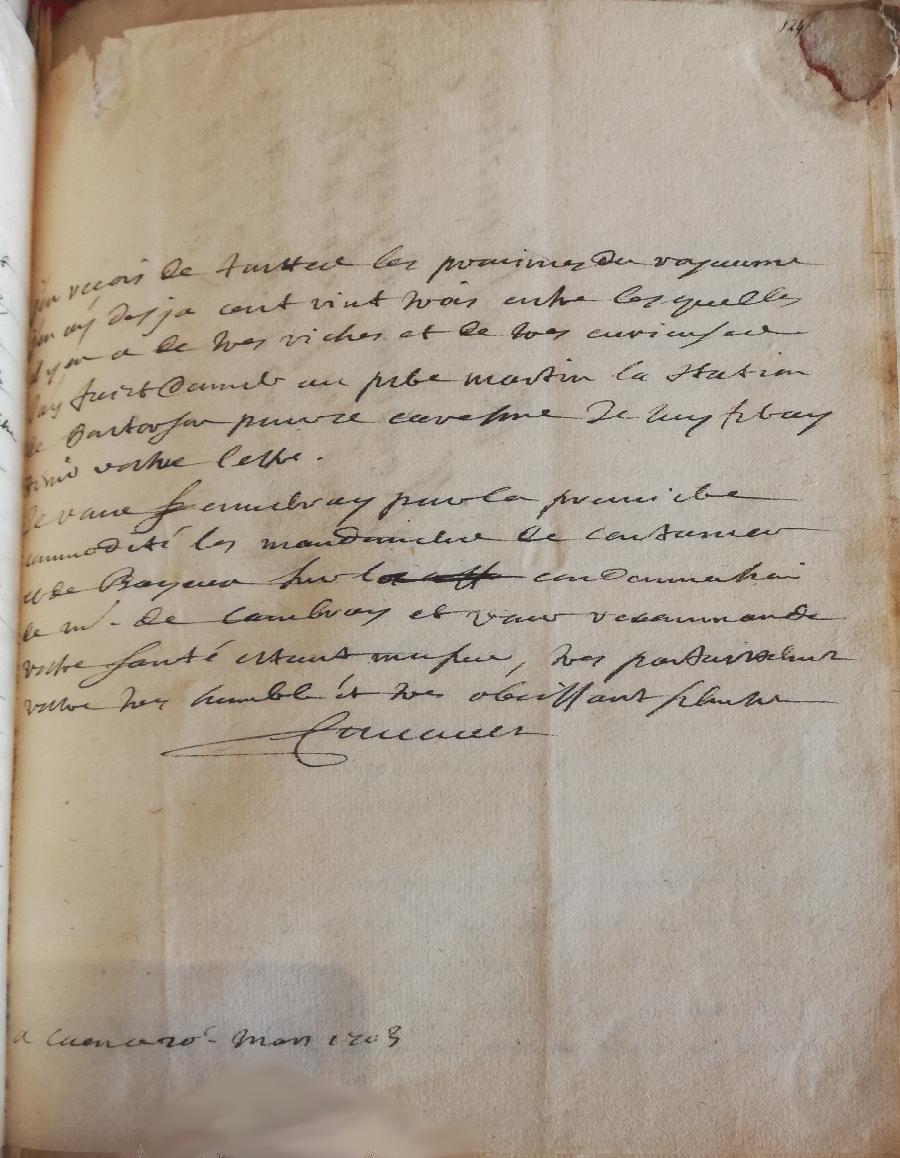 124
j'en reçois de touttes les provinces du royaume
j'en ay desja cent vint trois entre lesquelles
il y en a de tres riches et de tres curieuses
j'ay faict donner au pere martin la station
de pour ce caresme Je luy feray
tenir vostre lettre.
Je vous envoieray par la premiere
commodité les mandements de coutances
et de Bayeux sur la condamnation
de mr. de Cambray et vous recommande
vostre santé estant monsieur, tres parfaitement
vostre tres humble et tres obeissant serviteur
Foucault
a Caen ce 20e. Mars 1703